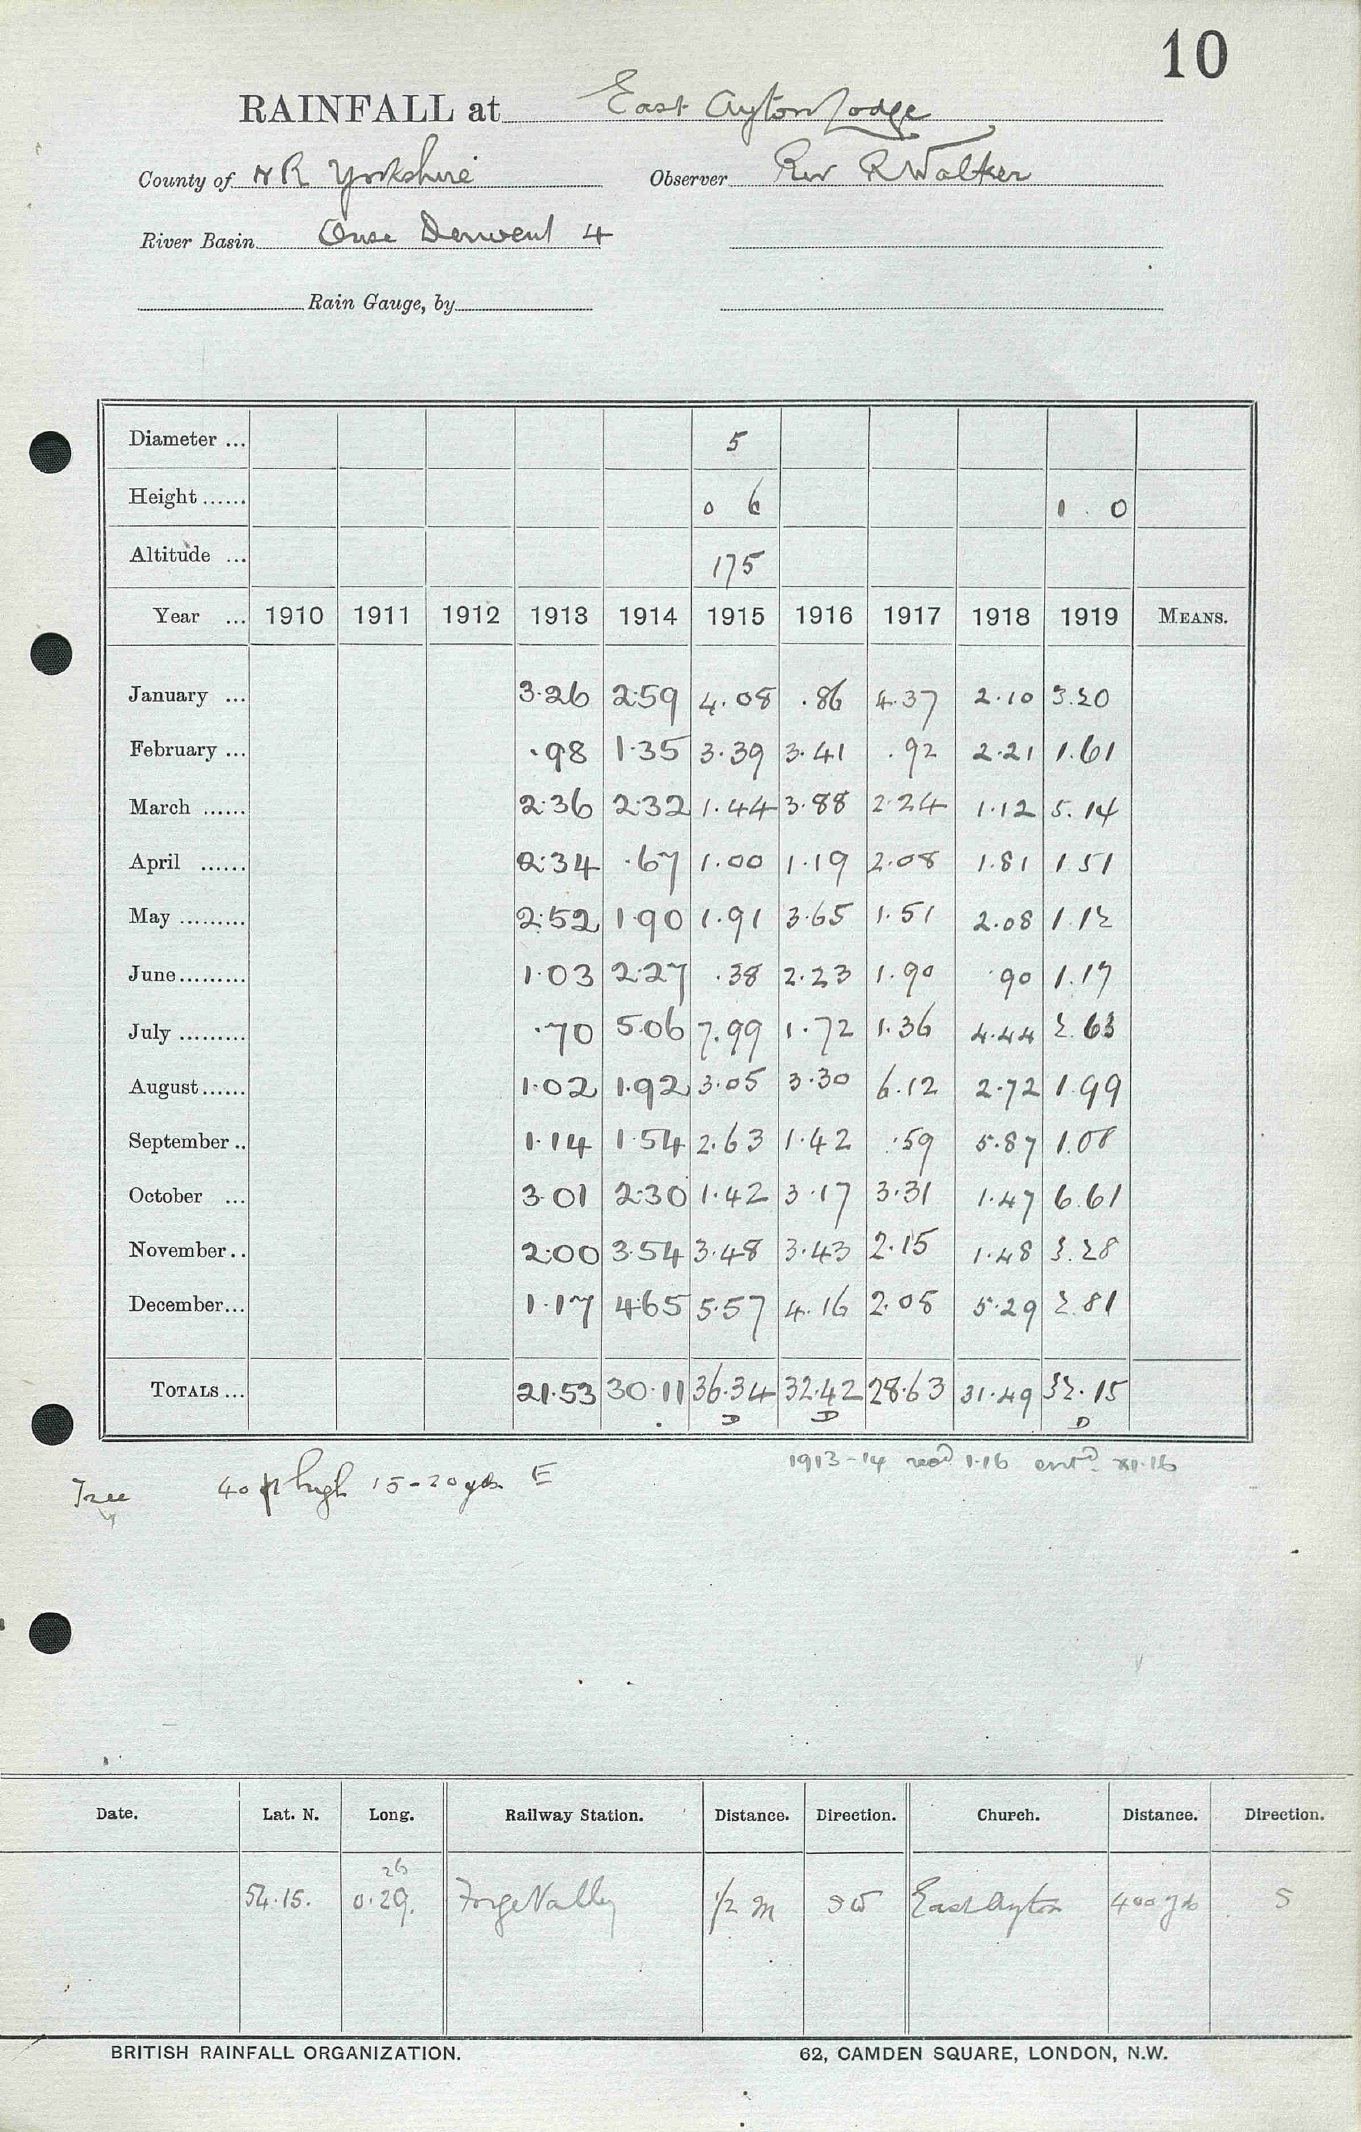 10
RAINFALL at East Ayton Lodge
County of N R Yorkshire Observer Rev R Walker
River Basin Ouse Derwent 4
Rain Gauge, by
Diameter ... 5
Height ...... 0 6 1 . 0
Altitude ... 175
Year ... 1910 1911 1912 1913 1914 1915 1916 1917 1918 1919 MEANS.
January ... 3.26 2.59 4.08 .86 4.37 2.10 3.20
February ... .98 1.35 3.39 3.41 .92 2.21 1.61
March ...... 2.36 2.32 1.44 3.88 2.24 1.12 5.14
April ...... 2.34 .67 1.00 1.19 2.08 1.81 1.51
May ......... 2.52 1.90 1.91 3.65 1.51 2.08 1.12
June......... 1.03 2.27 .38 2.23 1.90 .90 1.17
July ......... .70 5.06 7.99 1.72 1.36 4.44 2.63
August...... 1.02 1.92 3.05 3.30 6.12 2.72 1.99
September .. 1.14 1.54 2.63 1.42 .59 5.87 1.08
October ... 3.01 2.30 1.42 3.17 3.31 1.47 6.61
November.. 2.00 3.54 3.48 3.43 2.15 1.48 3.28
December... 1.17 4.65 5.57 4.16 2.08 5.29 2.81
TOTALS ... 21.53 30.11 36.34 32.42 28.63 31.49 32.15
D D D
1913-14 recd 1.16 entd. XI.16
Tree 40 ft high 15-20 yds E
Date. Lat. N. Long. Railway Station. Distance. Direction. Church. Distance. Direction.
26
54.15. 0.29. Forge Valley 1/2 m SW East Ayton 400 yds S
BRITISH RAINFALL ORGANIZATION. 62, CAMDEN SQUARE, LONDON, N.W.